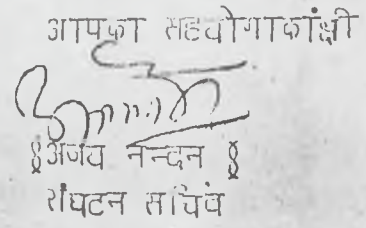 आपका सहयोगाकांक्षी
§अजय नन्दन §
संघटन सचिव